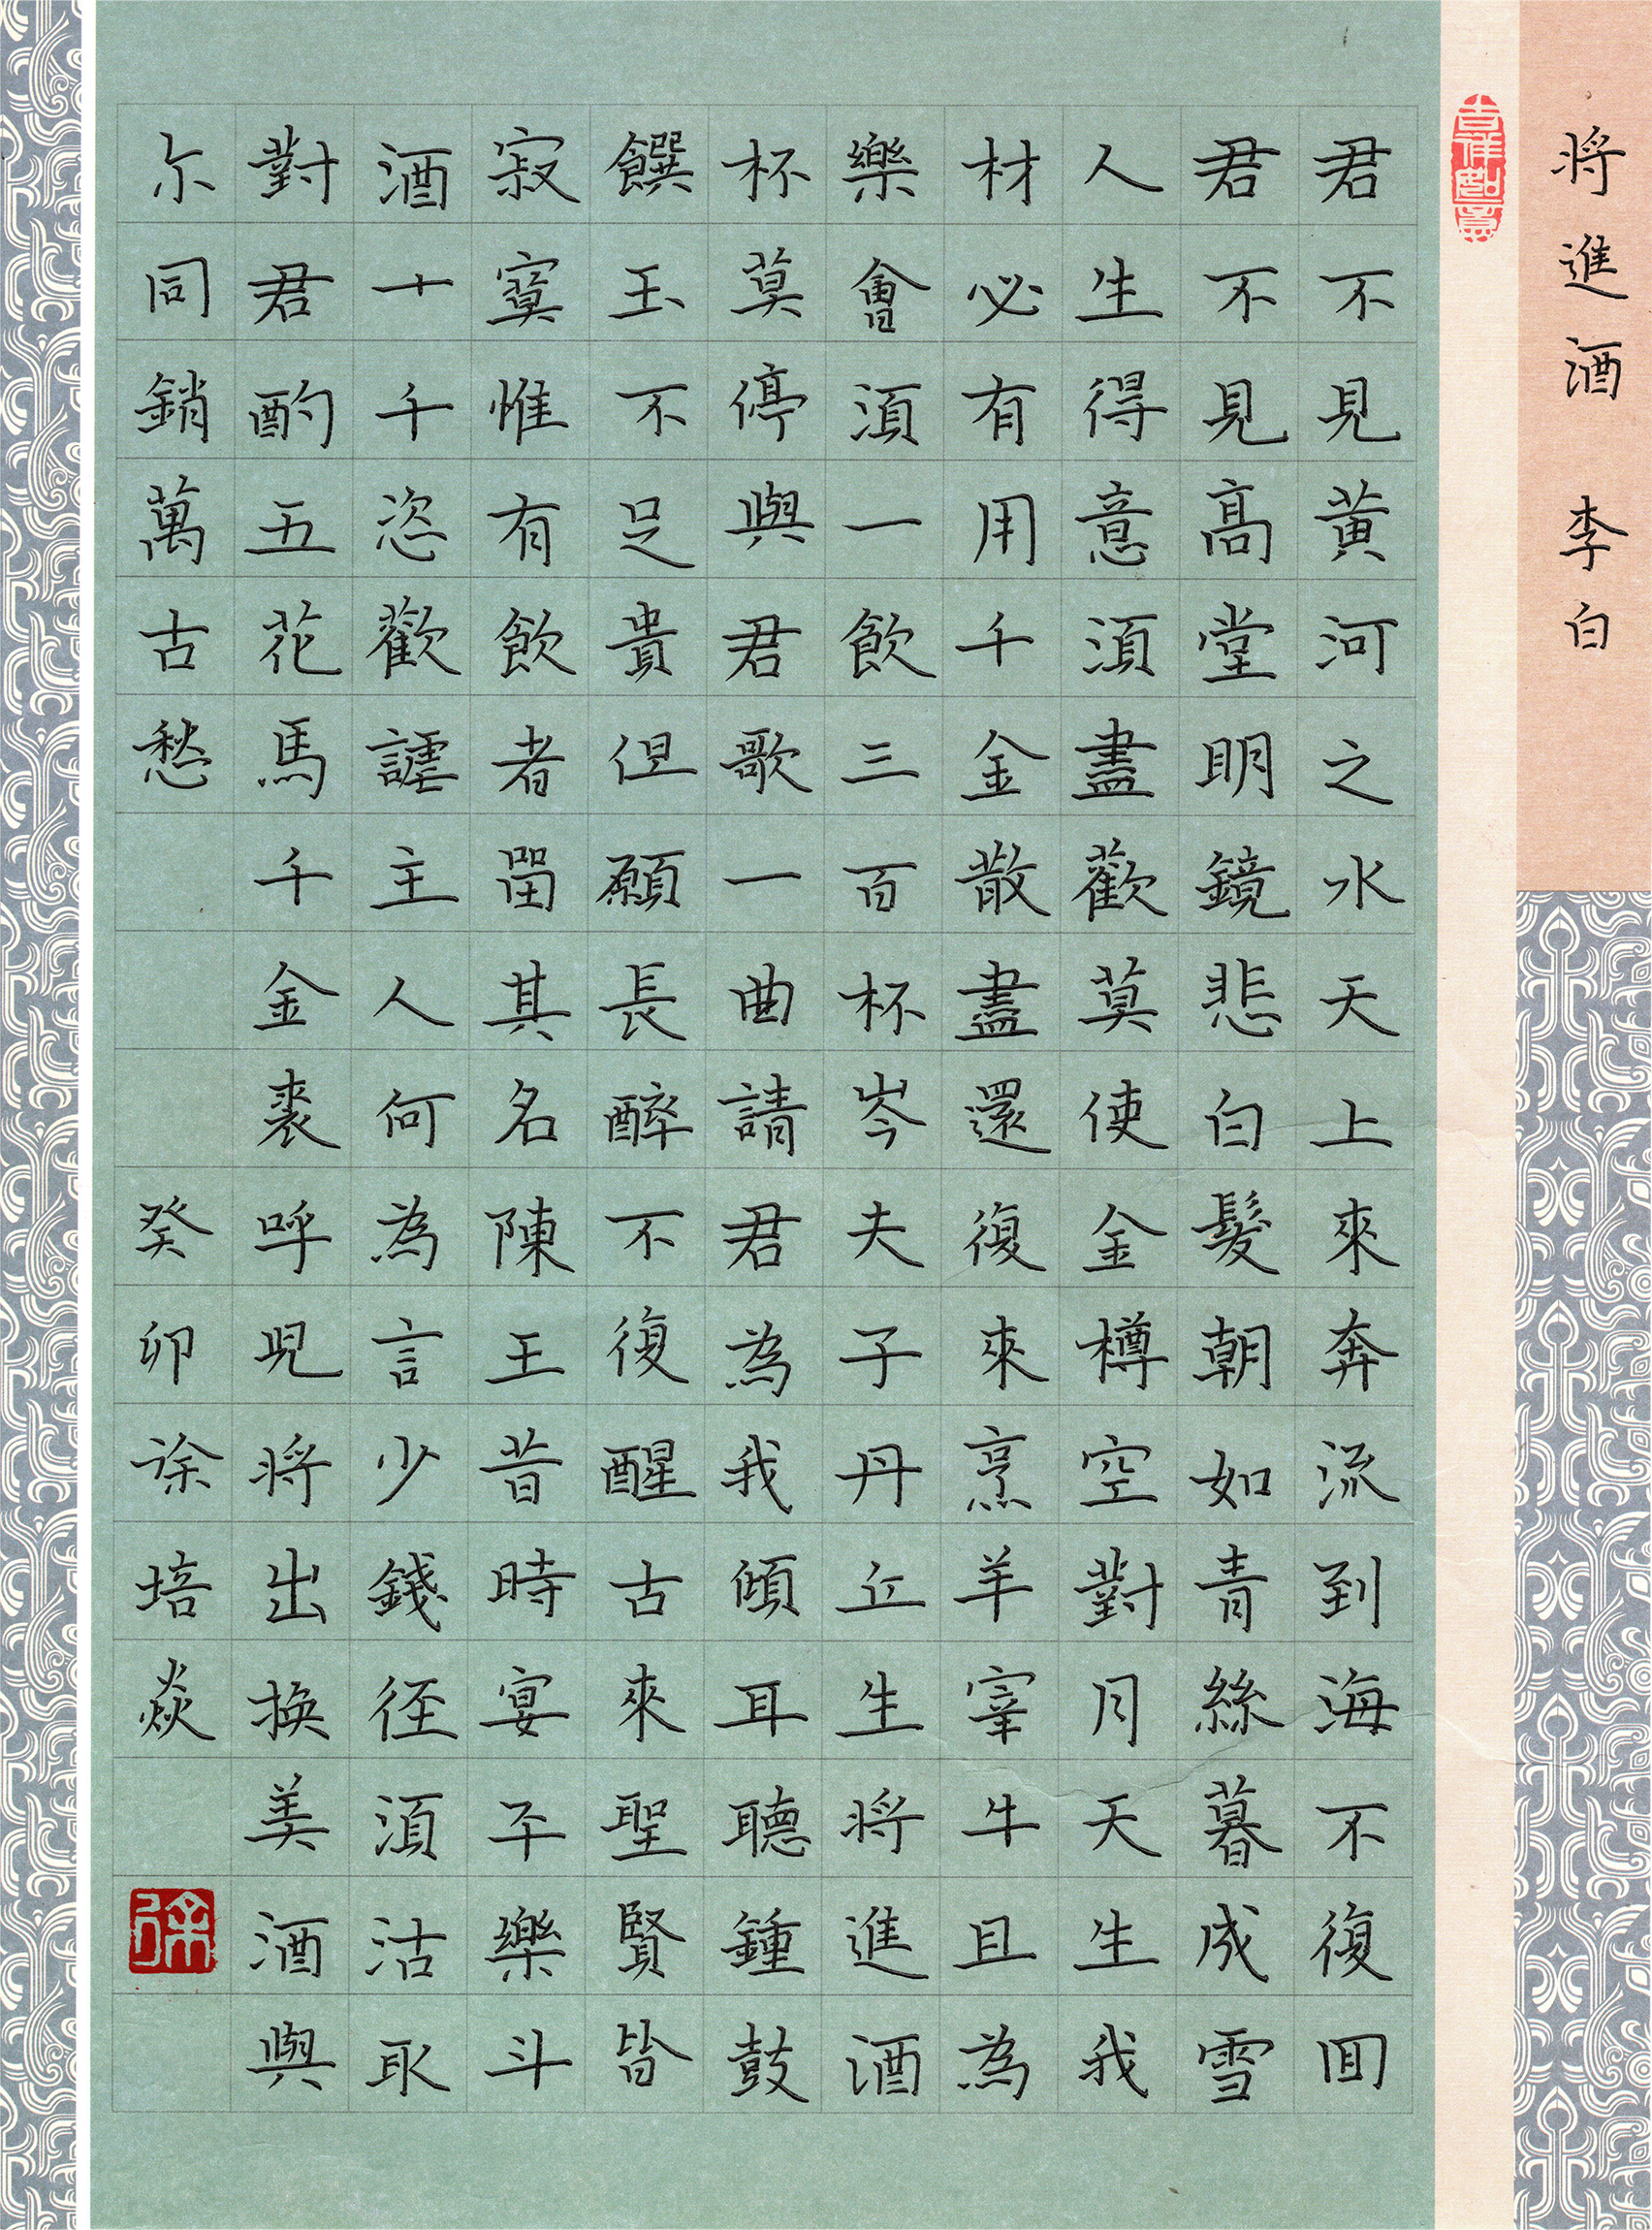 將進酒 李白
吉祥如意
君不見黃河之水天上來奔流到海不復回
君不見高堂明鏡悲白髮朝如青絲暮成雪
人生得意須盡歡莫使金樽空對月天生我
材必有用千金散盡還復來烹羊宰牛且為
樂會須一飲三百杯岑夫子丹丘生將進酒
杯莫停與君歌一曲請君為我傾耳聽鍾鼓
饌玉不足貴但願長醉不復醒古來聖賢皆
寂寞惟有飲者留其名陳王昔時宴平樂斗
酒十千恣歡謔主人何為言少錢徑須沽取
對君酌五花馬千金裘呼兒將出換美酒與
尓同銷萬古愁 癸卯 徐培焱
徐